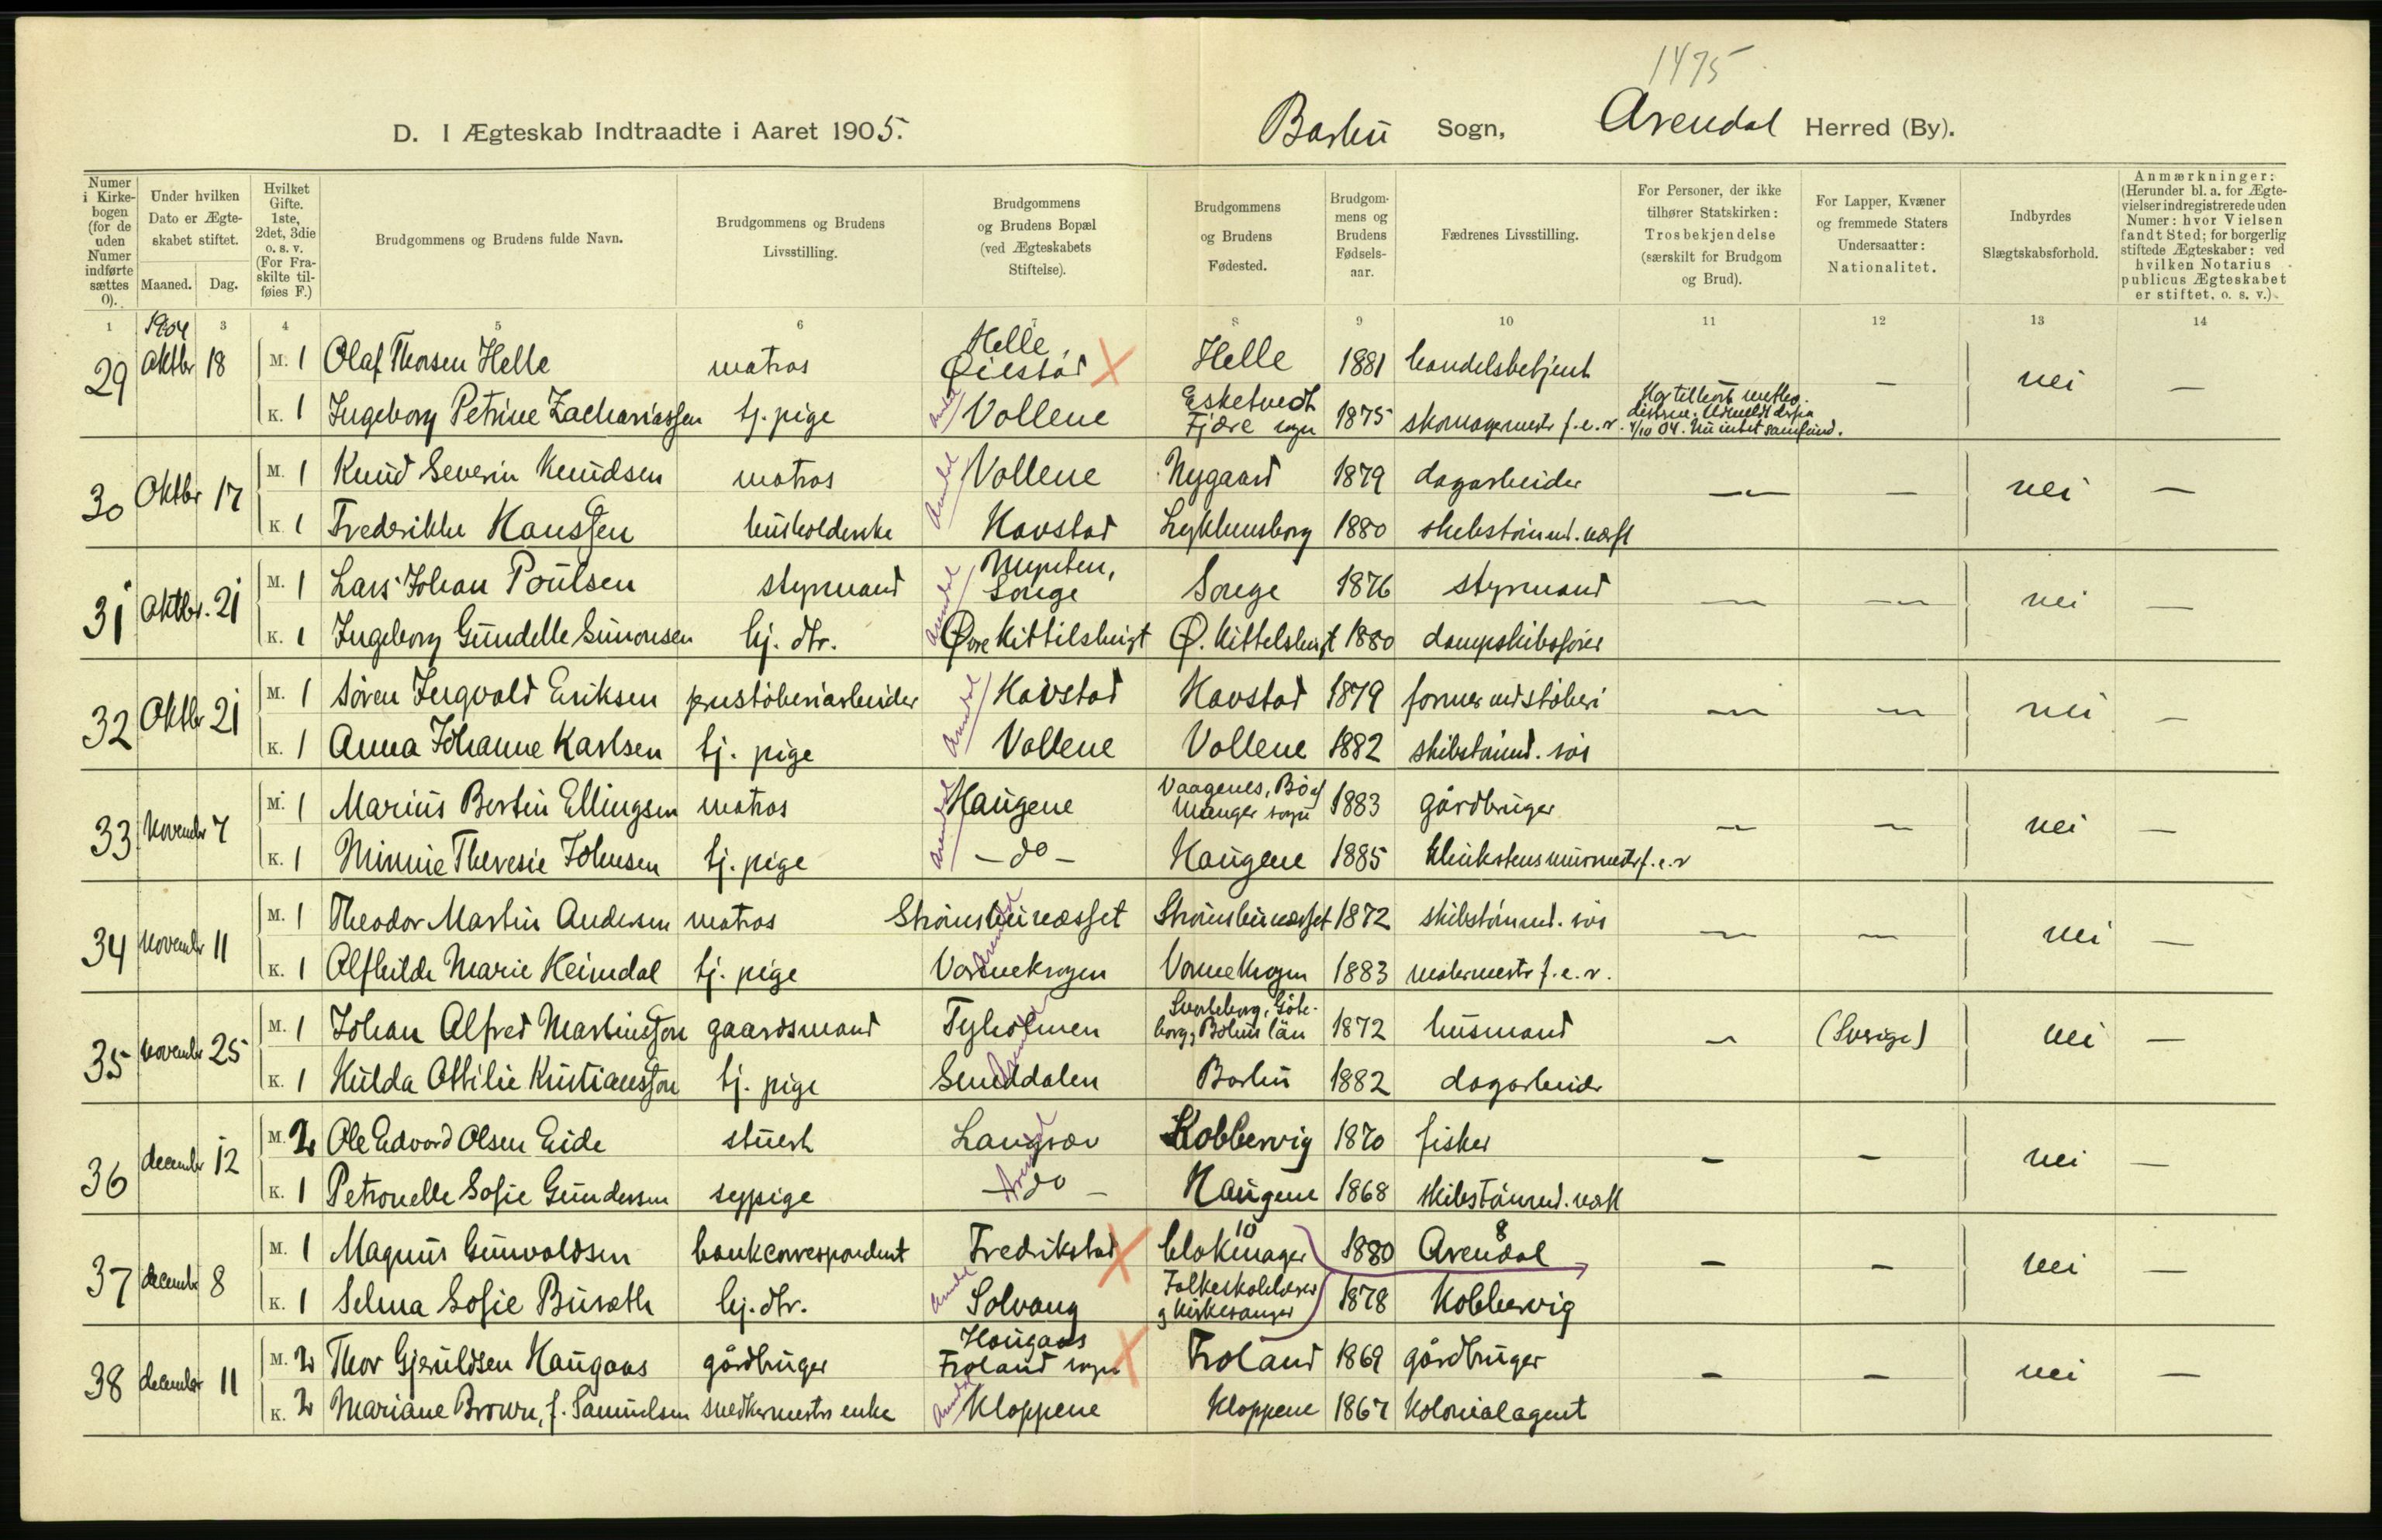 1475
D. I Ægteskab Indtraadte i Aaret 1905. Barbu Sogn, Arendal Herred (By).
Numer i Kirkebogen (for de uden Numer indførte sættes 0).
Under hvilken Dato er Ægteskabet stiftet.
Maaned. Dag.
Hvilket Gifte. 1ste, 2det, 3die o. s. v. (For Fraskilte tilføies F.)
Brudgommens og Brudens fulde Navn.
Brudgommens og Brudens Livsstilling.
Brudgommens og Brudens Bopæl (ved Ægteskabets Stiftelse).
Brudgommens og Brudens Fødested.
Brudgommens og Brudens Fødselsaar.
Fædrenes Livsstilling.
For Personer, der ikke tilhører Statskirken: Trosbekjendelse (særskilt for Brudgom og Brud).
For Lapper, Kvæner og fremmede Staters Undersaatter: Nationalitet.
Indbyrdes Slægtskabsforhold.
Anmærkninger: (Herunder bl. a. for Ægtevielser indregistrerede uden Numer: hvor Vielsen fandt Sted; for borgerlig stiftede Ægteskaber: ved hvilken Notarius publicus Ægteskabet er stiftet. o. s. v.)
1 3 4 5 6 7 8 9 10 11 12 13 14
1904
29 Oktbr 18 M. 1 Olaf Thorsen Helle matros Helle, Øiestad X Helle 1881 handelsbetjent — nei —
K. 1 Ingeborg Petrine Zachariassen tj. pige Arendal Vollene Esketvedt Fjære sogn 1875 skomagermestr f. e. v. Har tilhørt metho. distene. Udmeldt derfra 4/10 04. Nu intet samfund.
30 Oktbr 17 M. 1 Knud Severin Knudsen matros Arendal Vollene Nygaard 1879 dagarbeider — — nei —
K. 1 Fredrikke Hanssen husholderske Havstad Lykkensborg 1880 skibstømmd. værft
31 Oktbr. 21 M. 1 Lars Johan Poulsen styrmand Arendal Mynten, Songe Songe 1876 styrmand — — nei —
K. 1 Ingeborg Gundelle Simonsen hj. dtr. Øvre Kittilsbugt Ø. Kittelsbugt 1880 dampskibsfører
32 Oktbr 21 M. 1 Søren Ingvald Eriksen jernstøberiarbeider Arendal Havstad Havstad 1879 former ved støberi — — nei —
K. 1 Anna Johanne Karlsen tj. pige Vollene Vollene 1882 skibstømmd. søs
33 November 7 M. 1 Marius Bertin Ellingsen matros Arendal Haugene Vaagenes, Bø af Manger sogn 1883 gårdbruger — — nei —
K. 1 Minnie Theresie Johnsen tj. pige — do — Haugene 1885 klinkstensmurmestr f. e. v
34 November 11 M. 1 Theodor Martin Andersen matros Strømsbunæsset Strømsbunæsset 1872 skibstømmd. søs — — nei —
K. 1 Alfhilde Marie Heimdal tj. pige Arendal Vannekrogen Vannekrogen 1883 malermestr f. e. v.
35 November 25 M. 1 Johan Alfred Martinsson gaardsmand Tyholmen Svarteborg, Göteborgs Bohus län 1872 husmand — (Sverige) nei —
K. 1 Hulda Ottilie Kristiansson tj. pige Arendal Senddalen Barbu 1882 dagarbeider
36 december 12 M. 2 Ole Edvard Olsen Eide stuert Langsæv Kobbervig 1870 fisker — — nei —
K. 1 Petronelle Sofie Gundersen sypige Arendal — do — Haugene 1868 skibstømmd. værft
37 december 8 M. 1 Magnus Gunvaldsen bankcorrespondent Fredrikstad X 10 blokmager 1880 8 Arendal — — nei —
K. 1 Selma Sofie Busæth hj. dtr. Arendal Solvang Folkeskolelærer og kirkesanger 1878 Kobbervig
38 december 11 M. 2 Thor Gjeruldsen Haugaas gårdbruger Haugaas Froland sogn X Froland 1869 gårdbruger — — nei —
K. 2 Mariane Brown, f. Samuelsen snedkermestrs enke Arendal Kloppene Kloppene 1867 Kolonialagent